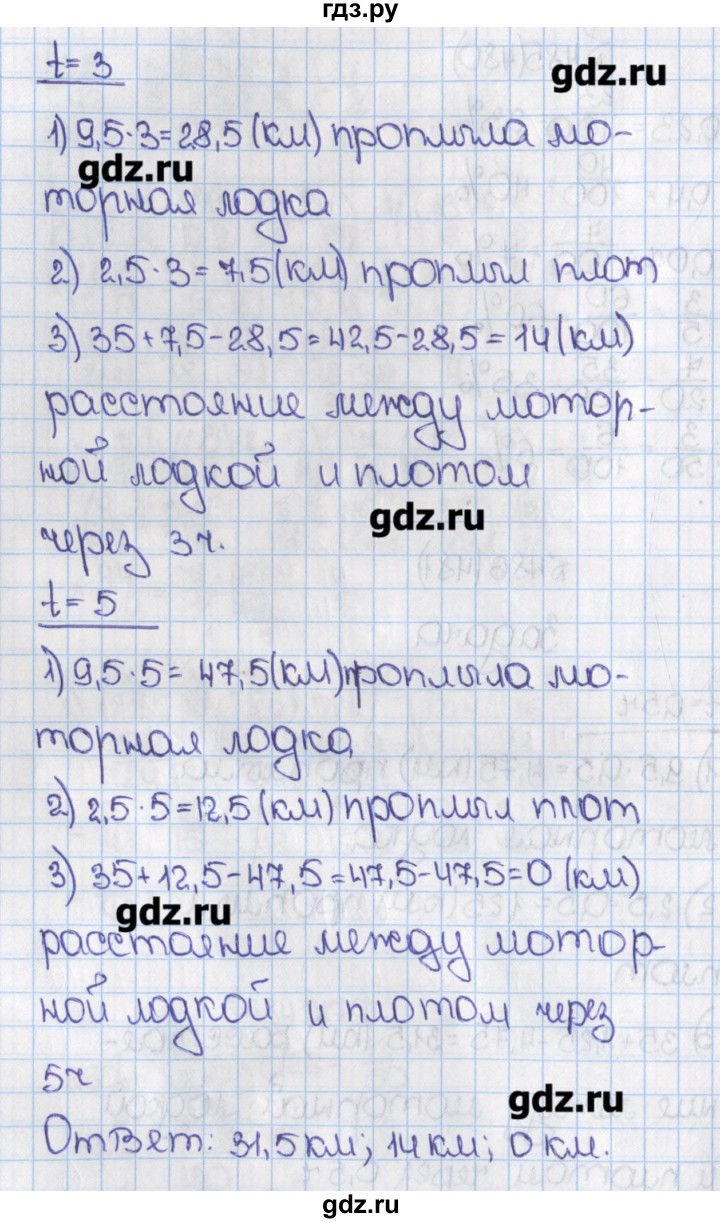 гдз.ру
t = 3
gdz.ru
1) 9,5·3=28,5 (км) проплыла мо-
gdz.ru
торная лодка
2) 2,5·3=7,5(км) проплыл плот
3) 35+7,5-28,5=42,5-28,5=14(км)
расстояние между мотор-
ной лодкой и плотом
gdz.ru
через 3 ч.
t = 5
1) 9,5·5= 47,5(км) проплыла мо-
торная лодка
2) 2,5·5=12,5 (км) проплыл плот
3) 35+12,5-47,5=47,5-47,5=0 (км)
gdz.ru
расстояние между мотор-
ной лодкой и плотом через
5ч
gdz.ru
Ответ: 31,5 км; 14 км; 0 км.
gdz.ru